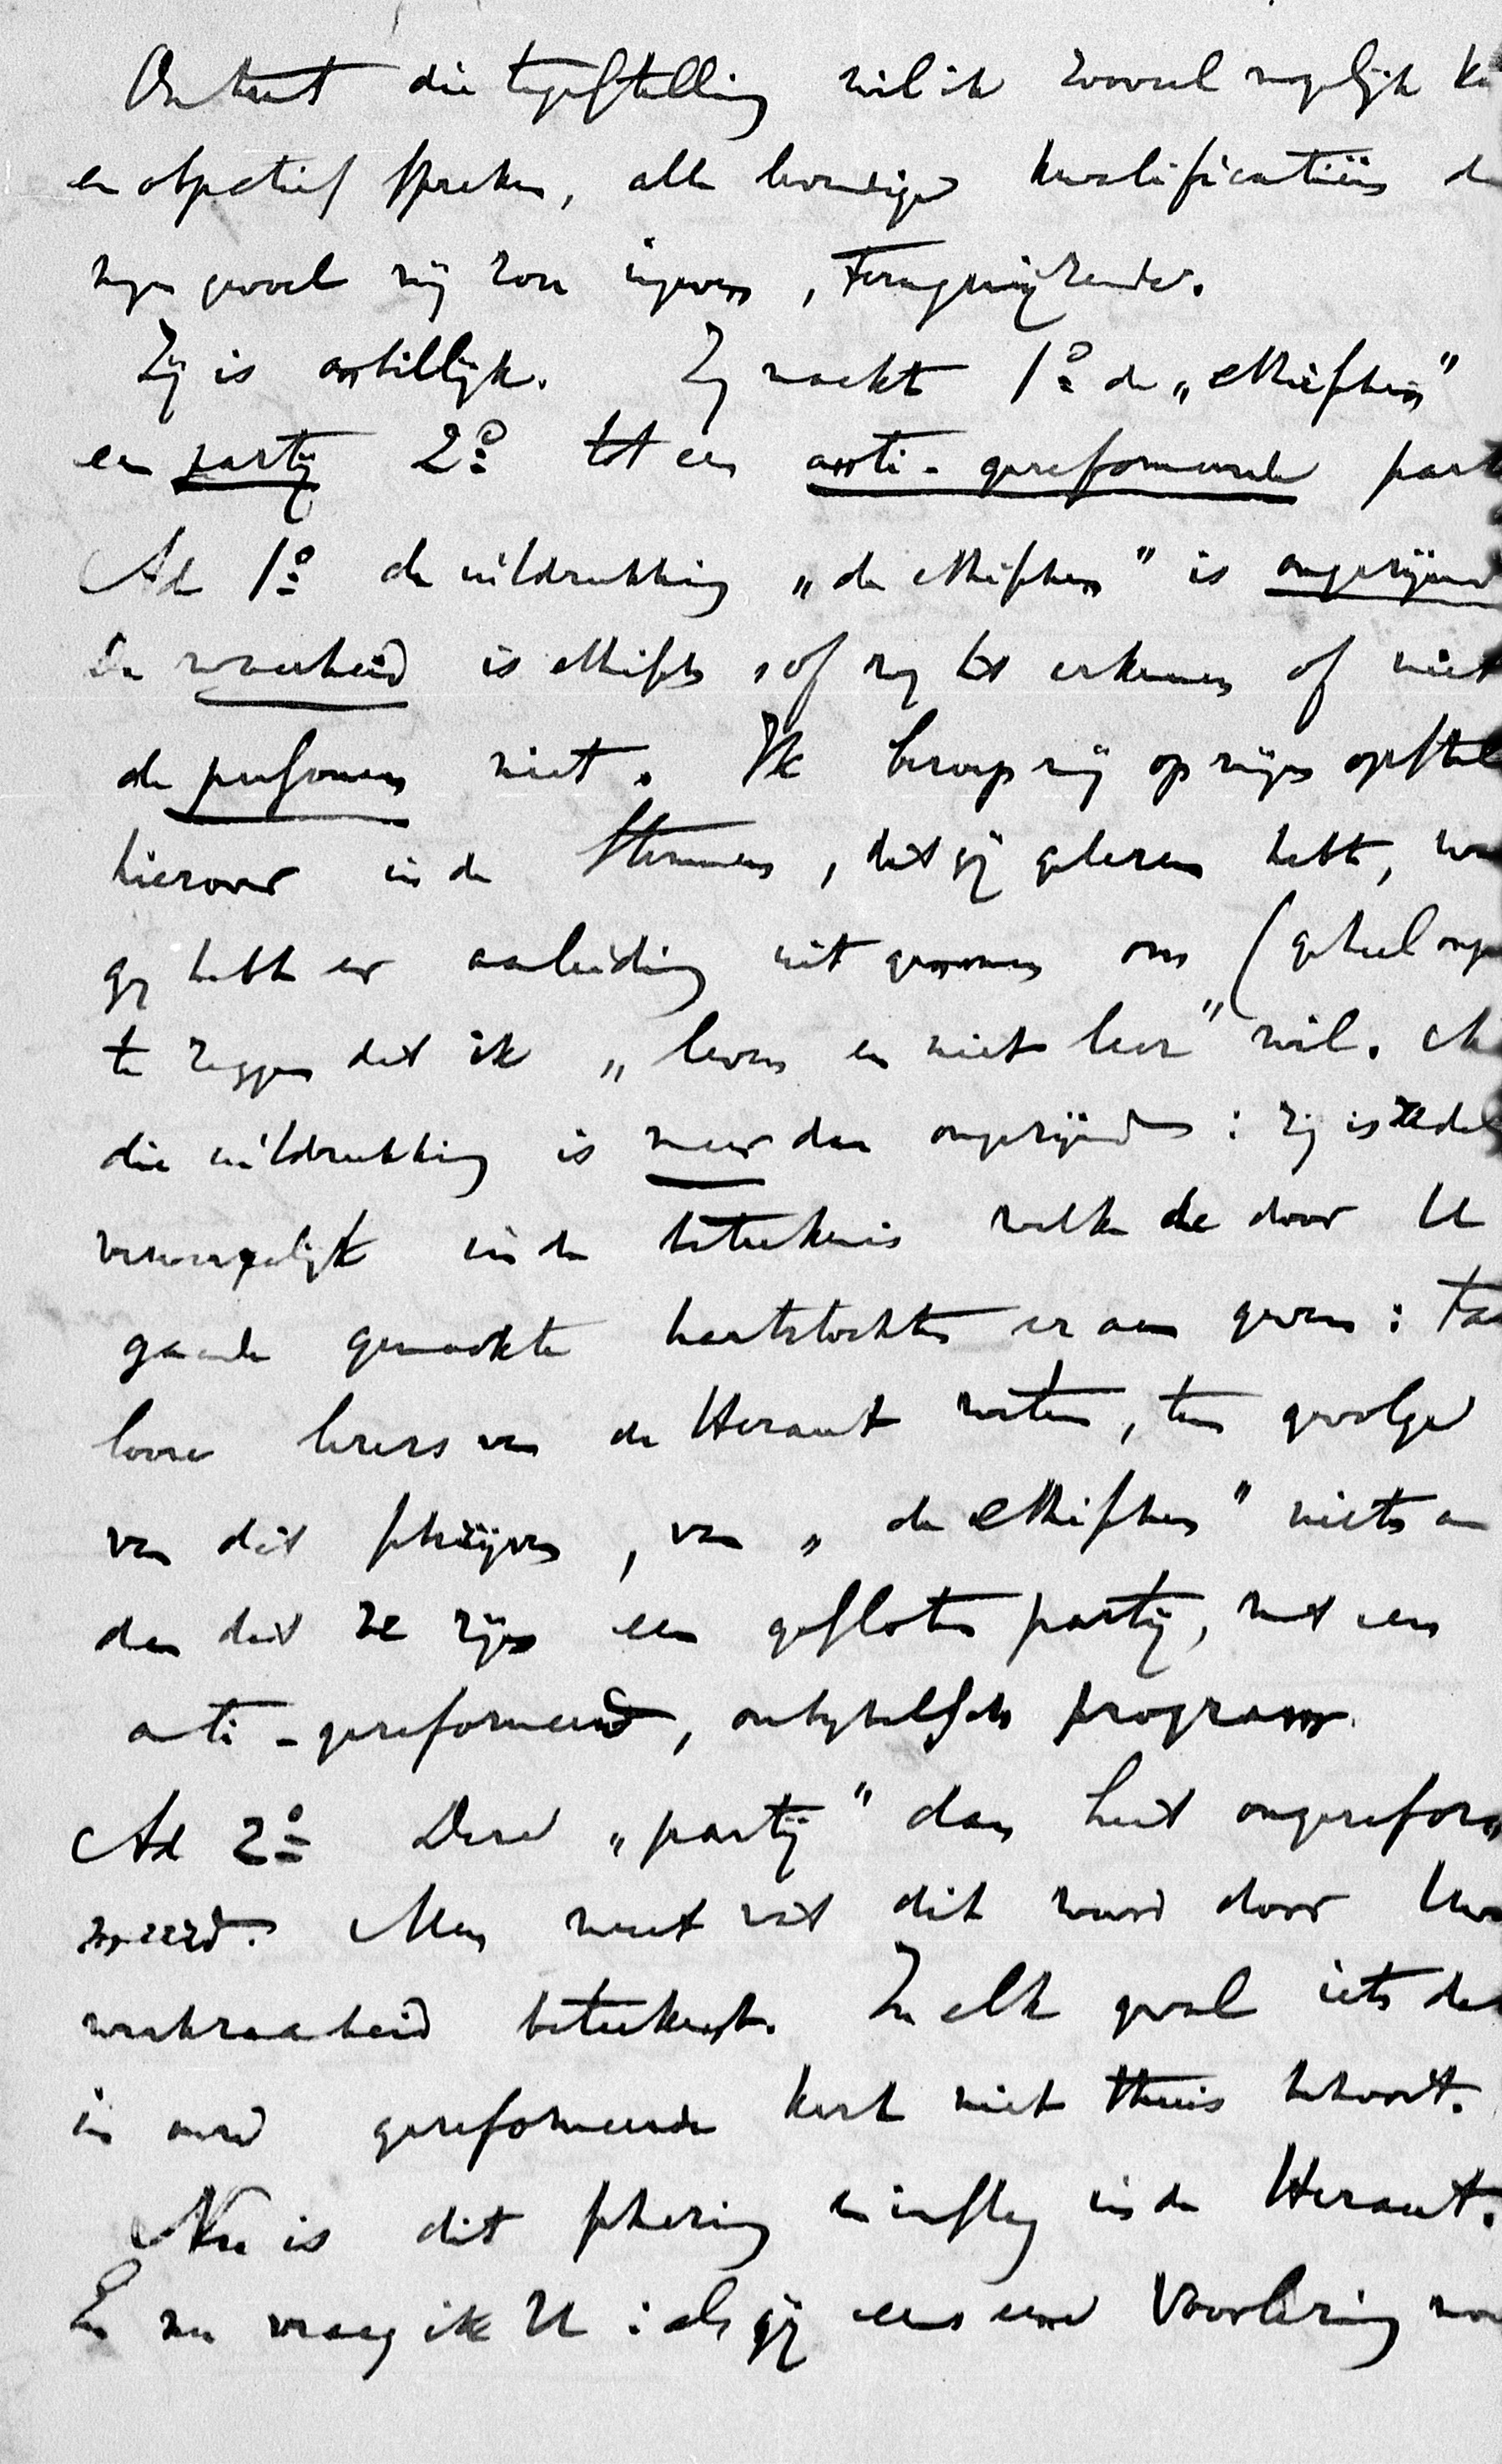 Omtrent die tegenstelling wil ik zooveel mogelijk
en objectief spreken, alle levendige kwalificatiën
mijn gevoel mij zou ingeven, terugdringende.
Zij is onbillijk. Zij maakt 1º de „ethischen"
een partij 2º tot een anti-gereformeerde
Ad 1º de uitdrukking „de ethischen" is ongerijmd
De waarheid is ethisch, of wij het erkennen of niet
de personen niet. Ik beroep mij op mijn
hierover in de Stemmen, dat gij gelezen hebt,
gij hebt er aanleiding uit genomen om (geheel
te zeggen dat ik „leven en niet leer" wil.
die uitdrukking is meer dan ongerijmd: zij is
verwerpelijk in de beteekenis welke de door U
gaande gemaakte hartstochten er aan geven:
looze lezers van de Heraut weten, ten gevolge
van dit schrijven, van „de ethischen" niets
dan dat ze zijn een gesloten partij, met een
anti-gereformeerd, onbijbelsch program.
Ad 2º Deze „partij" dan heet ongerefor
meerd. Men weet wat dit woord door
werkzaamheid beteekent. In elk geval iets
in onze gereformeerde kerk niet thuis behoort.
Nu is dit schering en inslag in de Heraut.
En nu vraag ik U: als gij eens eene Voorlezing